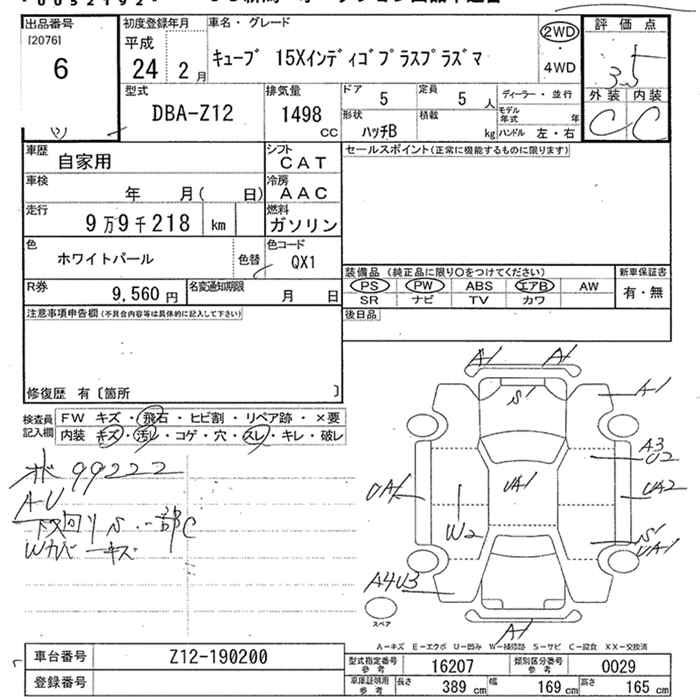 出品番号
[2076]
6
初度登録年月
平成
24 2月
車名・グレード
キューブ 15Xインディゴプラスプラズマ
2WD
・
4WD
評価点
3.5
外装 内装
C C
型式
DBA-Z12
排気量
1498
CC
ドア 5
定員 5 人
形状 ハッチB
積載 kg
ディーラー・並行
モデル年式 年
ハンドル 左・右
車歴 自家用
シフト CAT
セールスポイント(正常に機能するものに限ります)
車検 年 月( 日)
冷房 AAC
走行 9万9千218 km
燃料 ガソリン
色 ホワイトパール
色替
色コード QX1
装備品(純正品に限り○をつけてください)
新車保証書
PS PW ABS エアB AW
有・無
SR ナビ TV カワ
R券 9,560円
名変通知期限 月 日
後日品
注意事項申告欄(不具合内容等は具体的に記入して下さい)
修復歴 有〔箇所 〕
検査員記入欄
FW キズ・飛石・ヒビ割・リペア跡・×要
内装 キズ・汚レ・コゲ・穴・スレ・キレ・破レ
99222
A-U
下回りS・一部C
Wカバーキズ
A1 A1
S1
A1
A3
U2
UA1
UA1
UA2
W2
S1
UA1
A4U3
A1
スペア
A-キズ E-エクボ U-凹み W-補修跡 S-サビ C-腐食 XX-交換済
車台番号 Z12-190200
型式指定番号 参考 16207
類別区分番号 参考 0029
登録番号
車庫証明用 参考
長さ 389 cm
幅 169 cm
高さ 165 cm